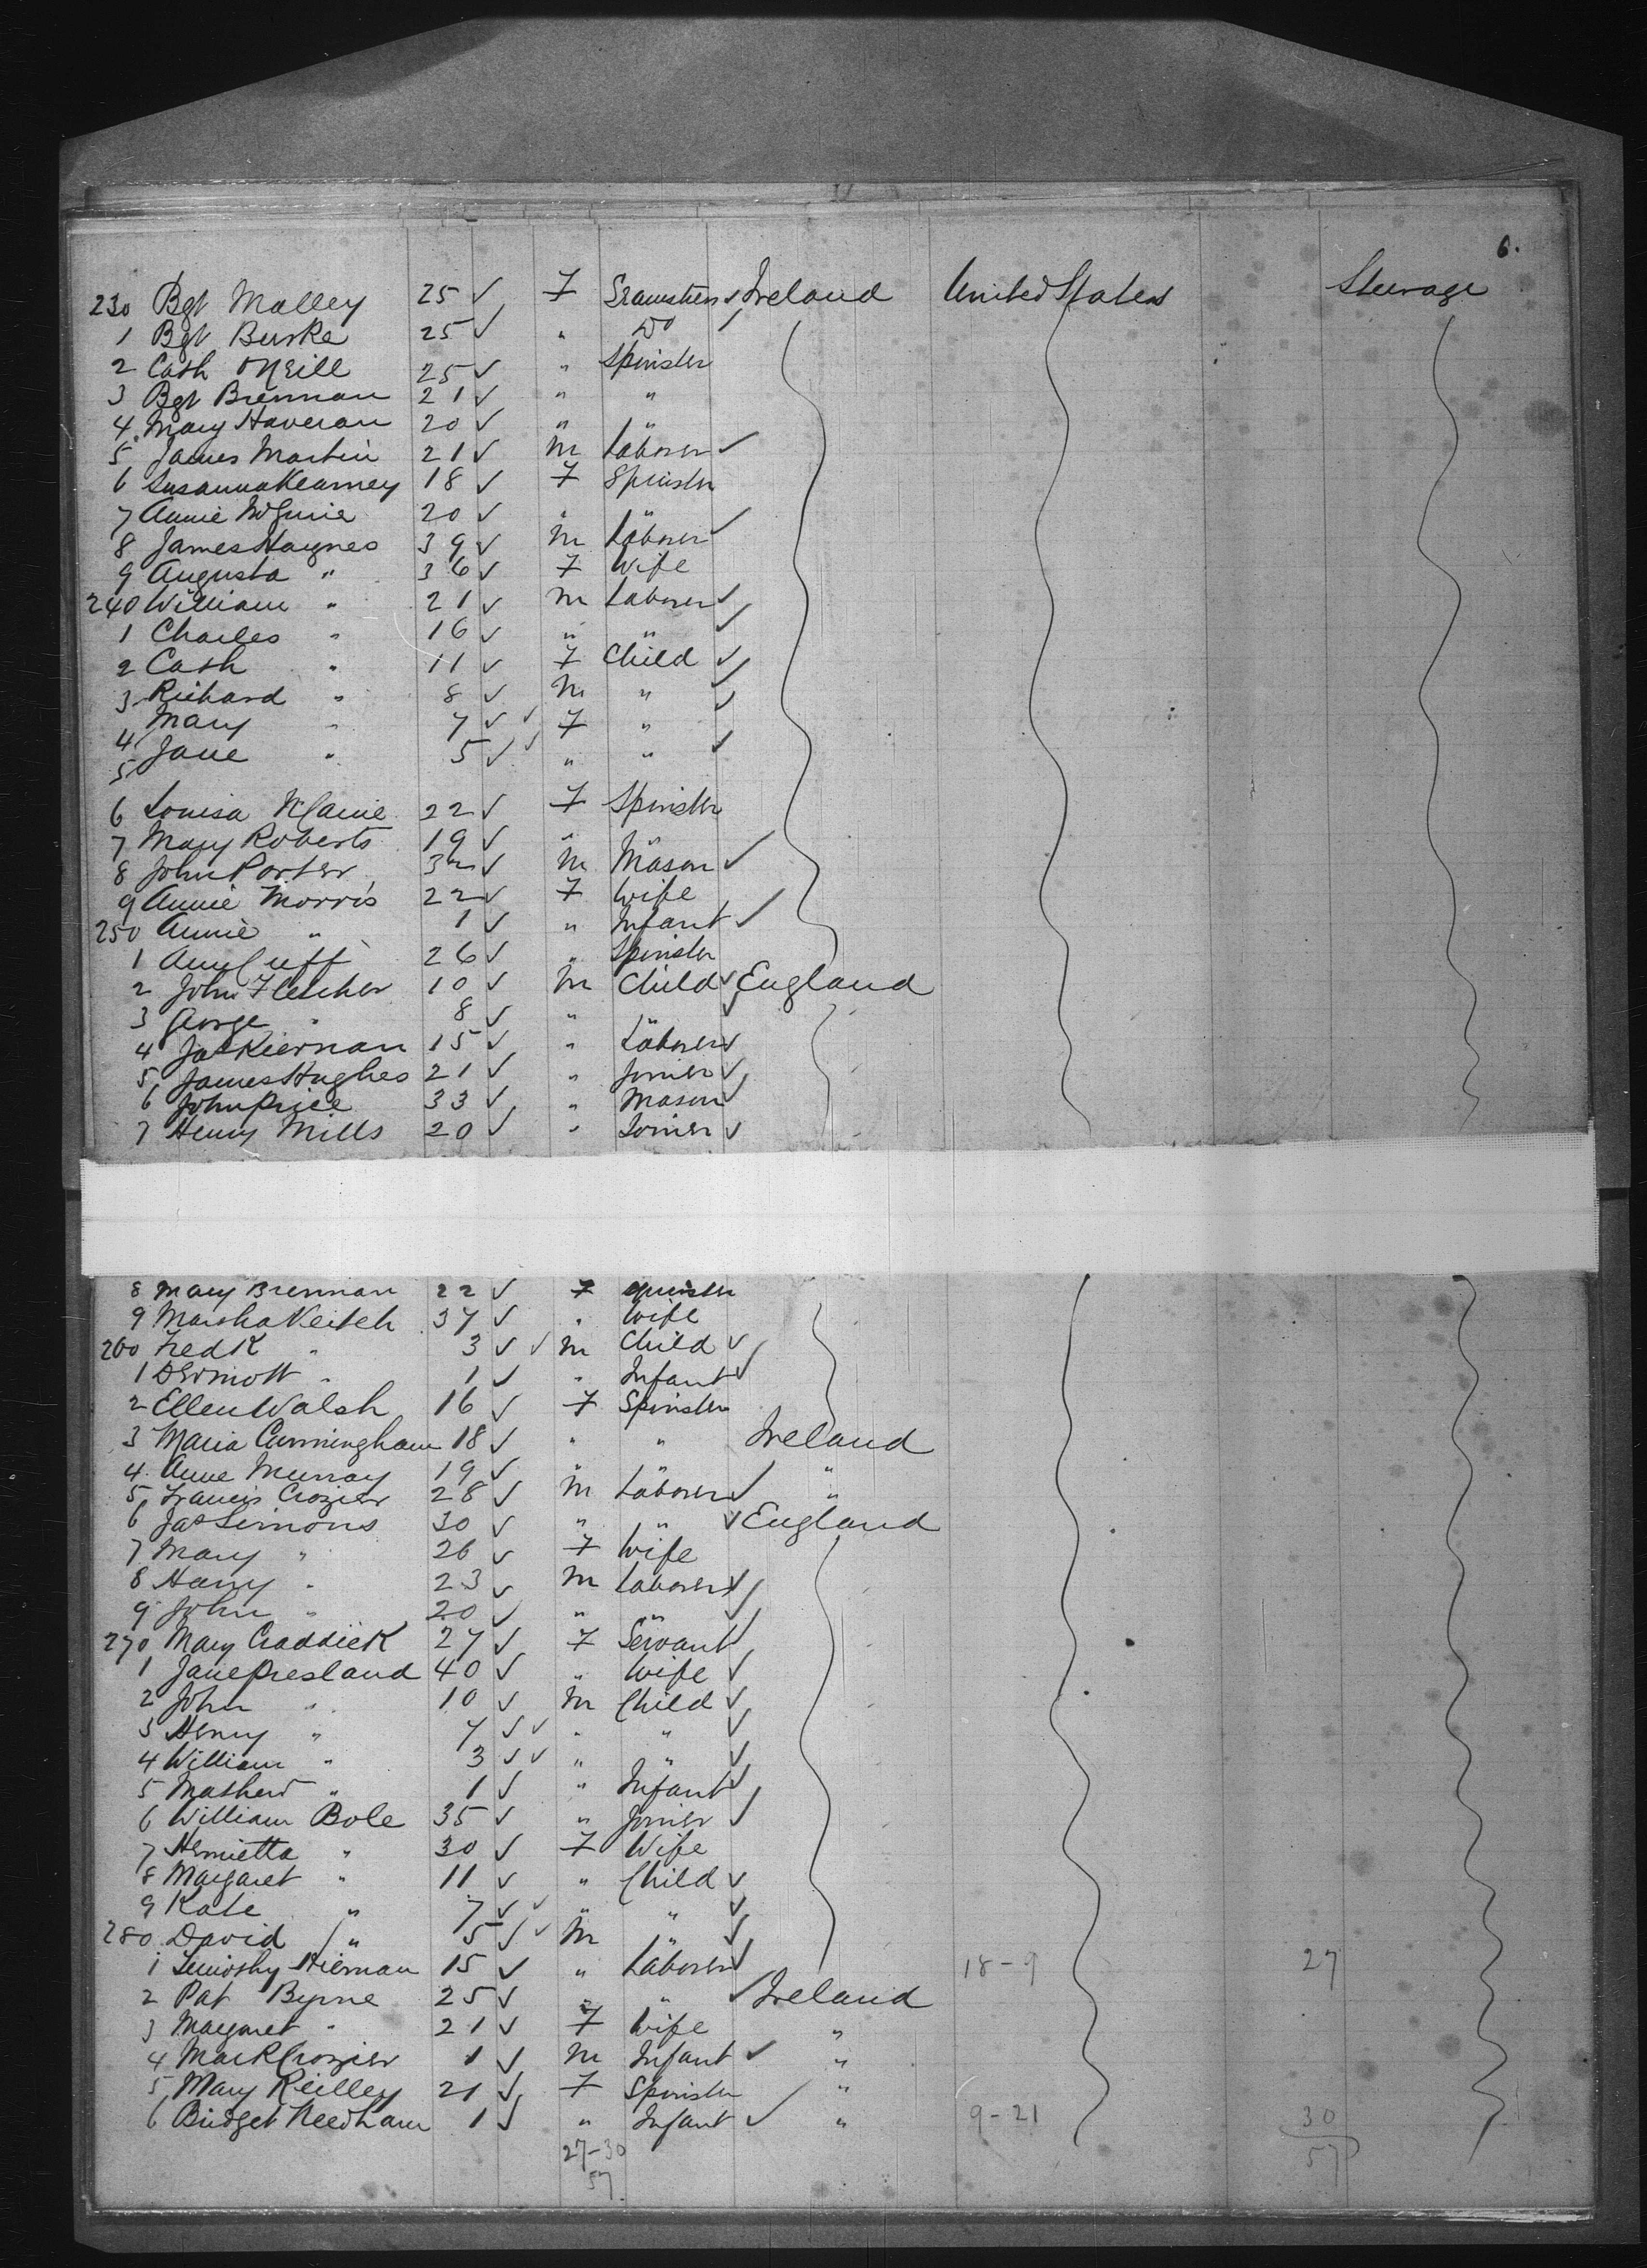 6.
230 Bgt Malley 25 ✓ F ✓ Ireland United States Steerage
1 Bgt Burke 25 ✓ " Do
2 Cath O'Neill 25 ✓ " Spinster
3 Bgt Brennan 21 ✓ " "
4 Mary Haveran 20 ✓ " "
5 James Martin 21 ✓ M Laborer ✓
6 Susanna Kearney 18 ✓ F Spinster
7 Annie McGuire 20 ✓ " "
8 James Haynes 39 ✓ M Laborer ✓
9 Augusta " 36 ✓ F Wife
240 William " 21 ✓ M Laborer ✓
1 Charles " 16 ✓ " " ✓
2 Cath " 11 ✓ F Child ✓
3 Richard " 8 ✓ M " ✓
4 Mary " 7 ✓ ✓ F " ✓
5 Jane " 5 ✓ ✓ " " ✓
6 Louisa 22 ✓ F Spinster
7 Mary Roberts 19 ✓ " "
8 John Porter 32 ✓ M Mason ✓
9 Annie Morris 22 ✓ F Wife
250 Annie " 1 ✓ " Infant ✓
1 Amy Cuff 26 ✓ " Spinster
2 John Fletcher 10 ✓ M Child ✓ England
3 George " 8 ✓ " " ✓
4 Jas Kiernan 15 ✓ " Laborer ✓
5 James Hughes 21 ✓ " Joiner ✓
6 John Price 33 ✓ " Mason ✓
7 Henry Mills 20 ✓ " Joiner ✓
8 Mary Brennan 22 ✓ F Spinster
9 Martha Veitch 37 ✓ " Wife
260 Fredk " 3 ✓ ✓ M Child ✓
1 Dermott " 1 ✓ " Infant ✓
2 Ellen Walsh 16 ✓ F Spinster
3 Maria Cunningham 18 ✓ " " Ireland
4 Anne Murray 19 ✓ " " "
5 Francis Crozier 28 ✓ M Laborer ✓ "
6 Jas Simons 30 ✓ " " ✓ England
7 Mary " 26 ✓ F Wife
8 Harry " 23 ✓ M Laborer ✓
9 John " 20 ✓ " " ✓
270 Mary Craddick 27 ✓ F Servant ✓
1 Jane Presland 40 ✓ " Wife ✓
2 John " 10 ✓ M Child ✓
3 Henry " 7 ✓ ✓ " " ✓
4 William " 3 ✓ ✓ " " ✓
5 Mathew " 1 ✓ " Infant ✓
6 William Bole 35 ✓ " Joiner ✓
7 Henrietta " 30 ✓ F Wife
8 Margaret " 11 ✓ " Child ✓
9 Kate " 7 ✓ ✓ " " ✓
280 David " 5 ✓ ✓ M " ✓
1 Timothy Hiernan 15 ✓ " Laborer ✓ 18-9 27
2 Pat Byrne 25 ✓ " " ✓ Ireland
3 Margaret " 21 ✓ F Wife "
4 Mark Crozier 1 ✓ M Infant ✓ "
5 Mary Reilley 21 ✓ F Spinster "
6 Bridget Needham 1 ✓ " Infant ✓ " 9-21 30
27-30 57
57